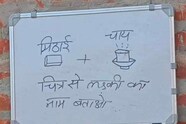 मिठाई चाय
+
चित्र से लड़की का
नाम बताओ